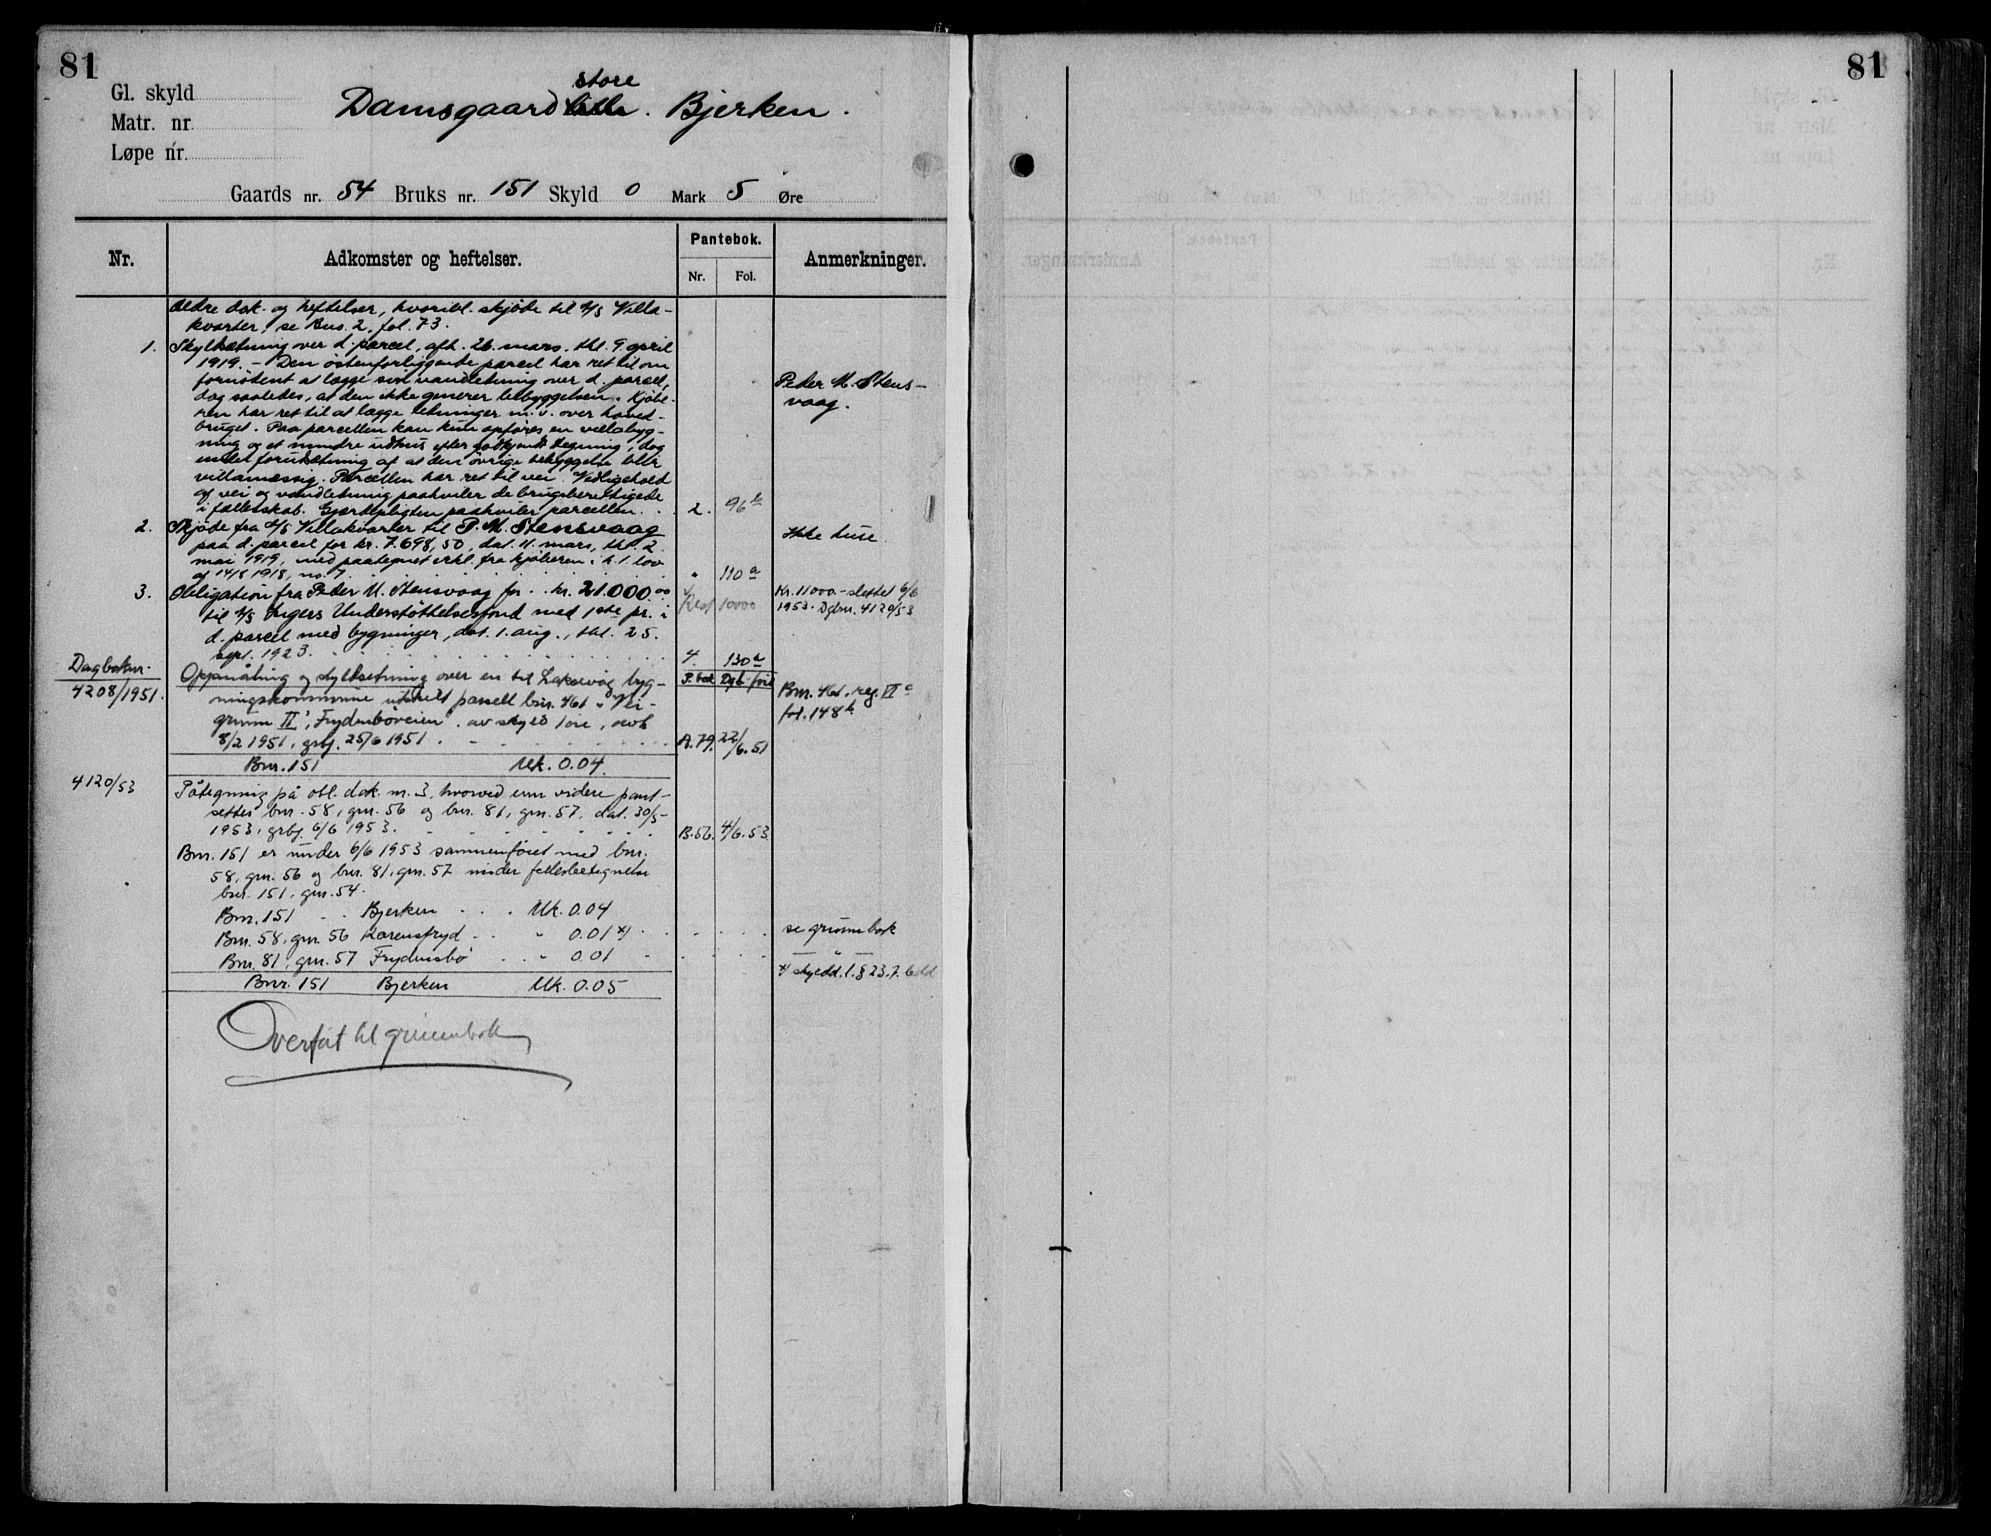 81
81
Gl. skyld
Matr. nr.
Løpe nr.
store
Damsgaard lille. Bjerken.
Gaards nr. 54 Bruks nr. 151 Skyld 0 Mark 5 Øre
Nr.
Adkomster og heftelser.
Pantebok.
Nr.
Fol.
Anmerkninger.
Ældre dok. og heftelser, hvoribl. skjøde til A/S Villa-
kvarter, se Bus. 2, fol. 73.
1. Skyldsætning over d. parcel, afh. 26. mars, thl. 9. april
1919. – Den østenforliggende parcel har ret til om
fornødent at lægge sin vandledning over d. parcel,
dog saaledes, at den ikke generer bebyggelsen. Kjøbe-
ren har ret til at lægge ledninger m. v. over hoved-
bruget. Paa parcellen kan kun opføres en villabyg-
ning og et mindre udhus efter godkjendt tegning, dog
under forutsætning af at den øvrige bebyggelse blir
villamæssig. Parcellen har ret til vei. Vedligehold
af vei og vandledning paahviler de brugsberettigede
i fællesskab. Gjærdepligten paahviler parcellen. 2. 96 b
Peder M. Stens-
vaag.
2. Skjøde fra A/S Villakvarter til P. M. Stensvaag
paa d. parcel for kr. 7.698,50, dat. 11. mars, thl. 2.
mai 1919, med paategnet erkl. fra kjøberen i h. t. lov
af 14/8 1918, no. 7. " 110 a
Ikke huse.
3. Obligation fra Peder M. Stensvaag for kr. 21.000.00
til A/S Understøttelsesfond med 1ste pr. i
d. parcel med bygninger, dat. 1. aug., thl. 25.
sept. 1923. 4. 130 a
Rest 10000
Kr. 11000.- slettet 6/6
1953. Dgbnr. 4120/53
Dagboknr.
4208/1951.
P. bok Dgb. ført
Oppmåling og skyldsetning over en til Laksevåg byg-
ningskommune utskilt parsell bnr. 461 "
II, Frydenbøveien". av skyld 1 øre, avh.
8/2 1951, grbj. 25/6 1951. A. 79. 22/6.51
Bnr. 461, reg. VI a
fol. 148 b
Bnr. 151 Mk. 0.04.
4120/53
Påtegning på obl. dok. nr. 3, hvorved enn videre pant-
settes bnr. 58, gnr. 56 og bnr. 81, gnr. 57. dat. 30/5-
1953, grbj. 6/6 1953. B. 56. 4/6. 53.
Bnr. 151 er under 6/6 1953 sammenføiet med bnr.
58, gnr. 56 og bnr. 81, gnr. 57 under fellesbetegnelse
bnr. 151, gnr. 54.
Bnr. 151 Bjerken Mk. 0.04
Bnr. 58, gnr. 56 Karensfryd " 0.01 x) se grunnbok
Bnr. 81, gnr. 57 Frydensbø " 0.01 — " —
x) skyldd. l. § 23. 7. ledd
Bnr. 151 Bjerken Mk. 0.05
Overført til grunnbok